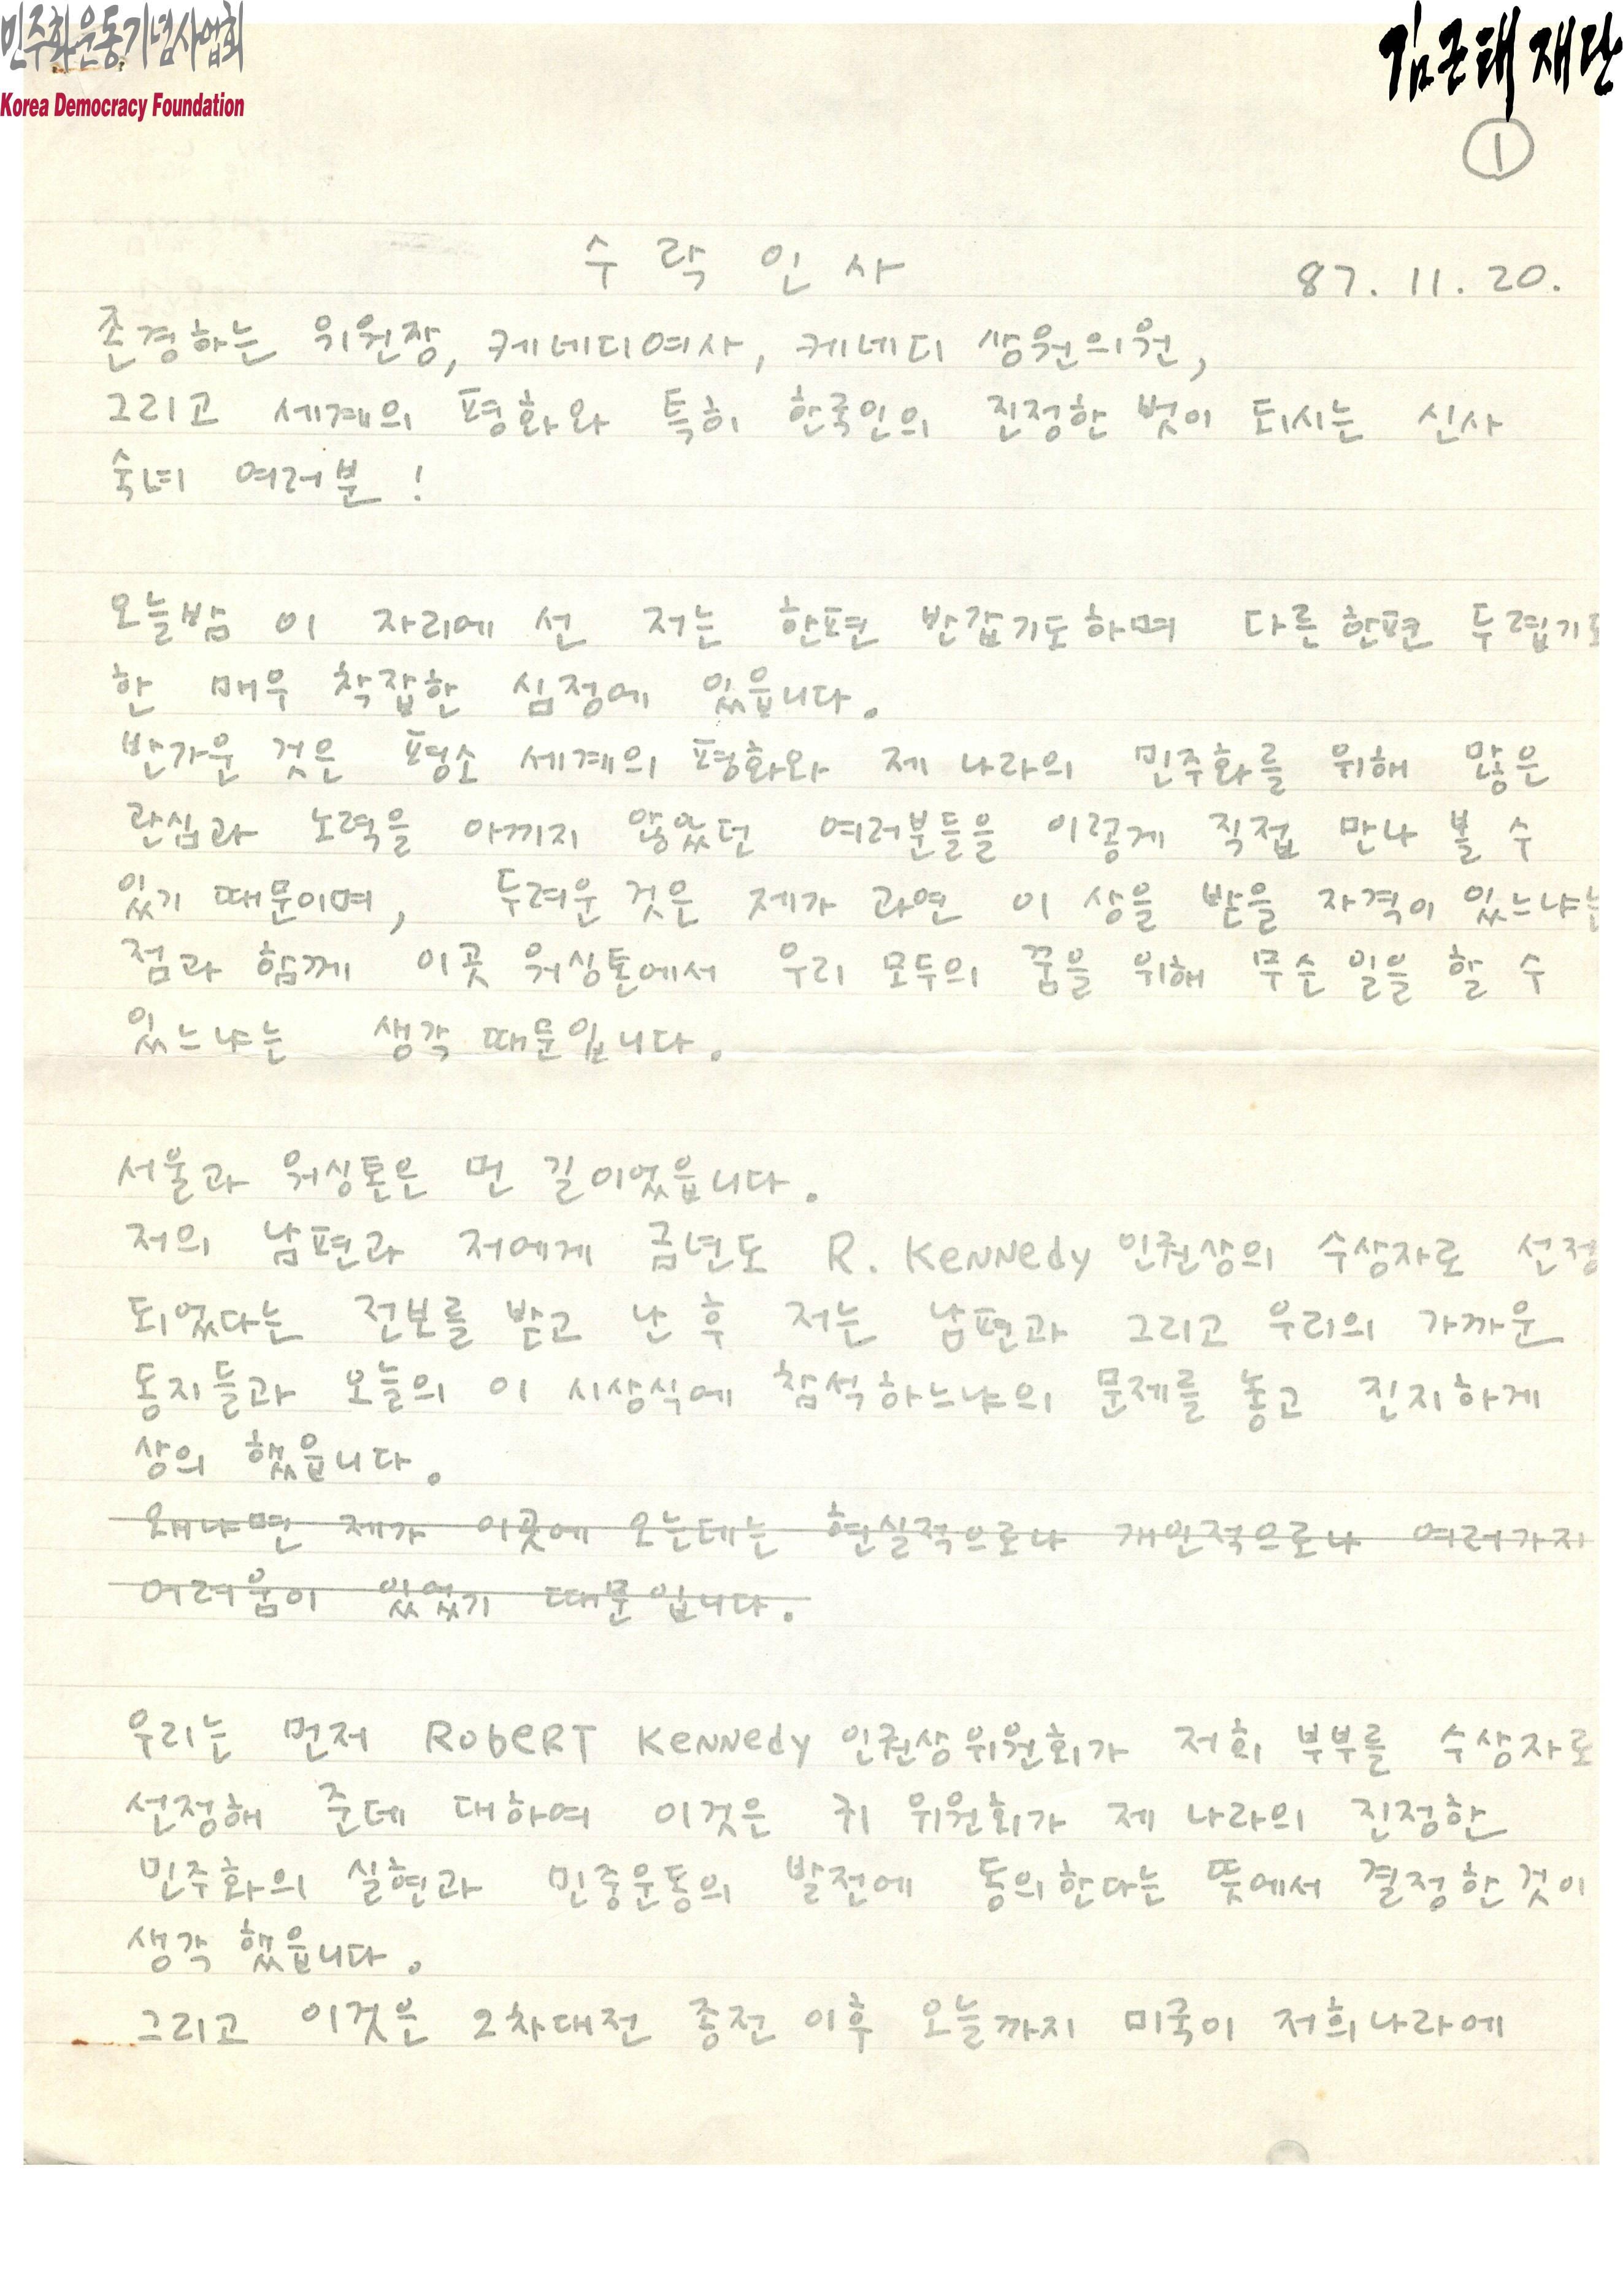 민주화운동기념사업회
Korea Democracy Foundation
김근태재단
1
수락인사
87. 11. 20.
존경하는 위원장, 케네디여사, 케네디 쌍원의원,
그리고 세계의 평화와 특히 한국인의 진정한 벗이 되시는 신사
숙녀 여러분!
오늘밤 이 자리에 선 저는 한편 반갑기도하며 다른한편 두렵기도
한 매우 착잡한 심정에 있읍니다.
반가운 것은 평소 세계의 평화와 제 나라의 민주화를 위해 많은
관심과 노력을 아끼지 않았던 여러분들을 이렇게 직접 만나 볼 수
있기 때문이며, 두려운 것은 제가 과연 이 상을 받을 자격이 있느냐는
점과 함께 이곳 워싱톤에서 우리 모두의 꿈을 위해 무슨 일을 할 수
있느냐는 생각 때문입니다.
서울과 워싱톤은 먼 길이었읍니다.
저의 남편과 저에게 금년도 R. Kennedy 인권상의 수상자로 선정
되었다는 전보를 받고 난 후 저는 남편과 그리고 우리의 가까운
동지들과 오늘의 이 시상식에 참석하느냐의 문제를 놓고 진지하게
상의 했읍니다.
왜냐면 제가 이곳에 오는데는 현실적으로나 개인적으로나 여러가지
어려움이 있었기 때문입니다.
우리는 먼저 Robert Kennedy 인권상위원회가 저희 부부를 수상자로
선정해 준데 대하여 이것은 귀 위원회가 제 나라의 진정한
민주화의 실현과 민중운동의 발전에 동의한다는 뜻에서 결정한것이
생각 했읍니다.
그리고 이것은 2차대전 종전 이후 오늘까지 미국이 저희나라에